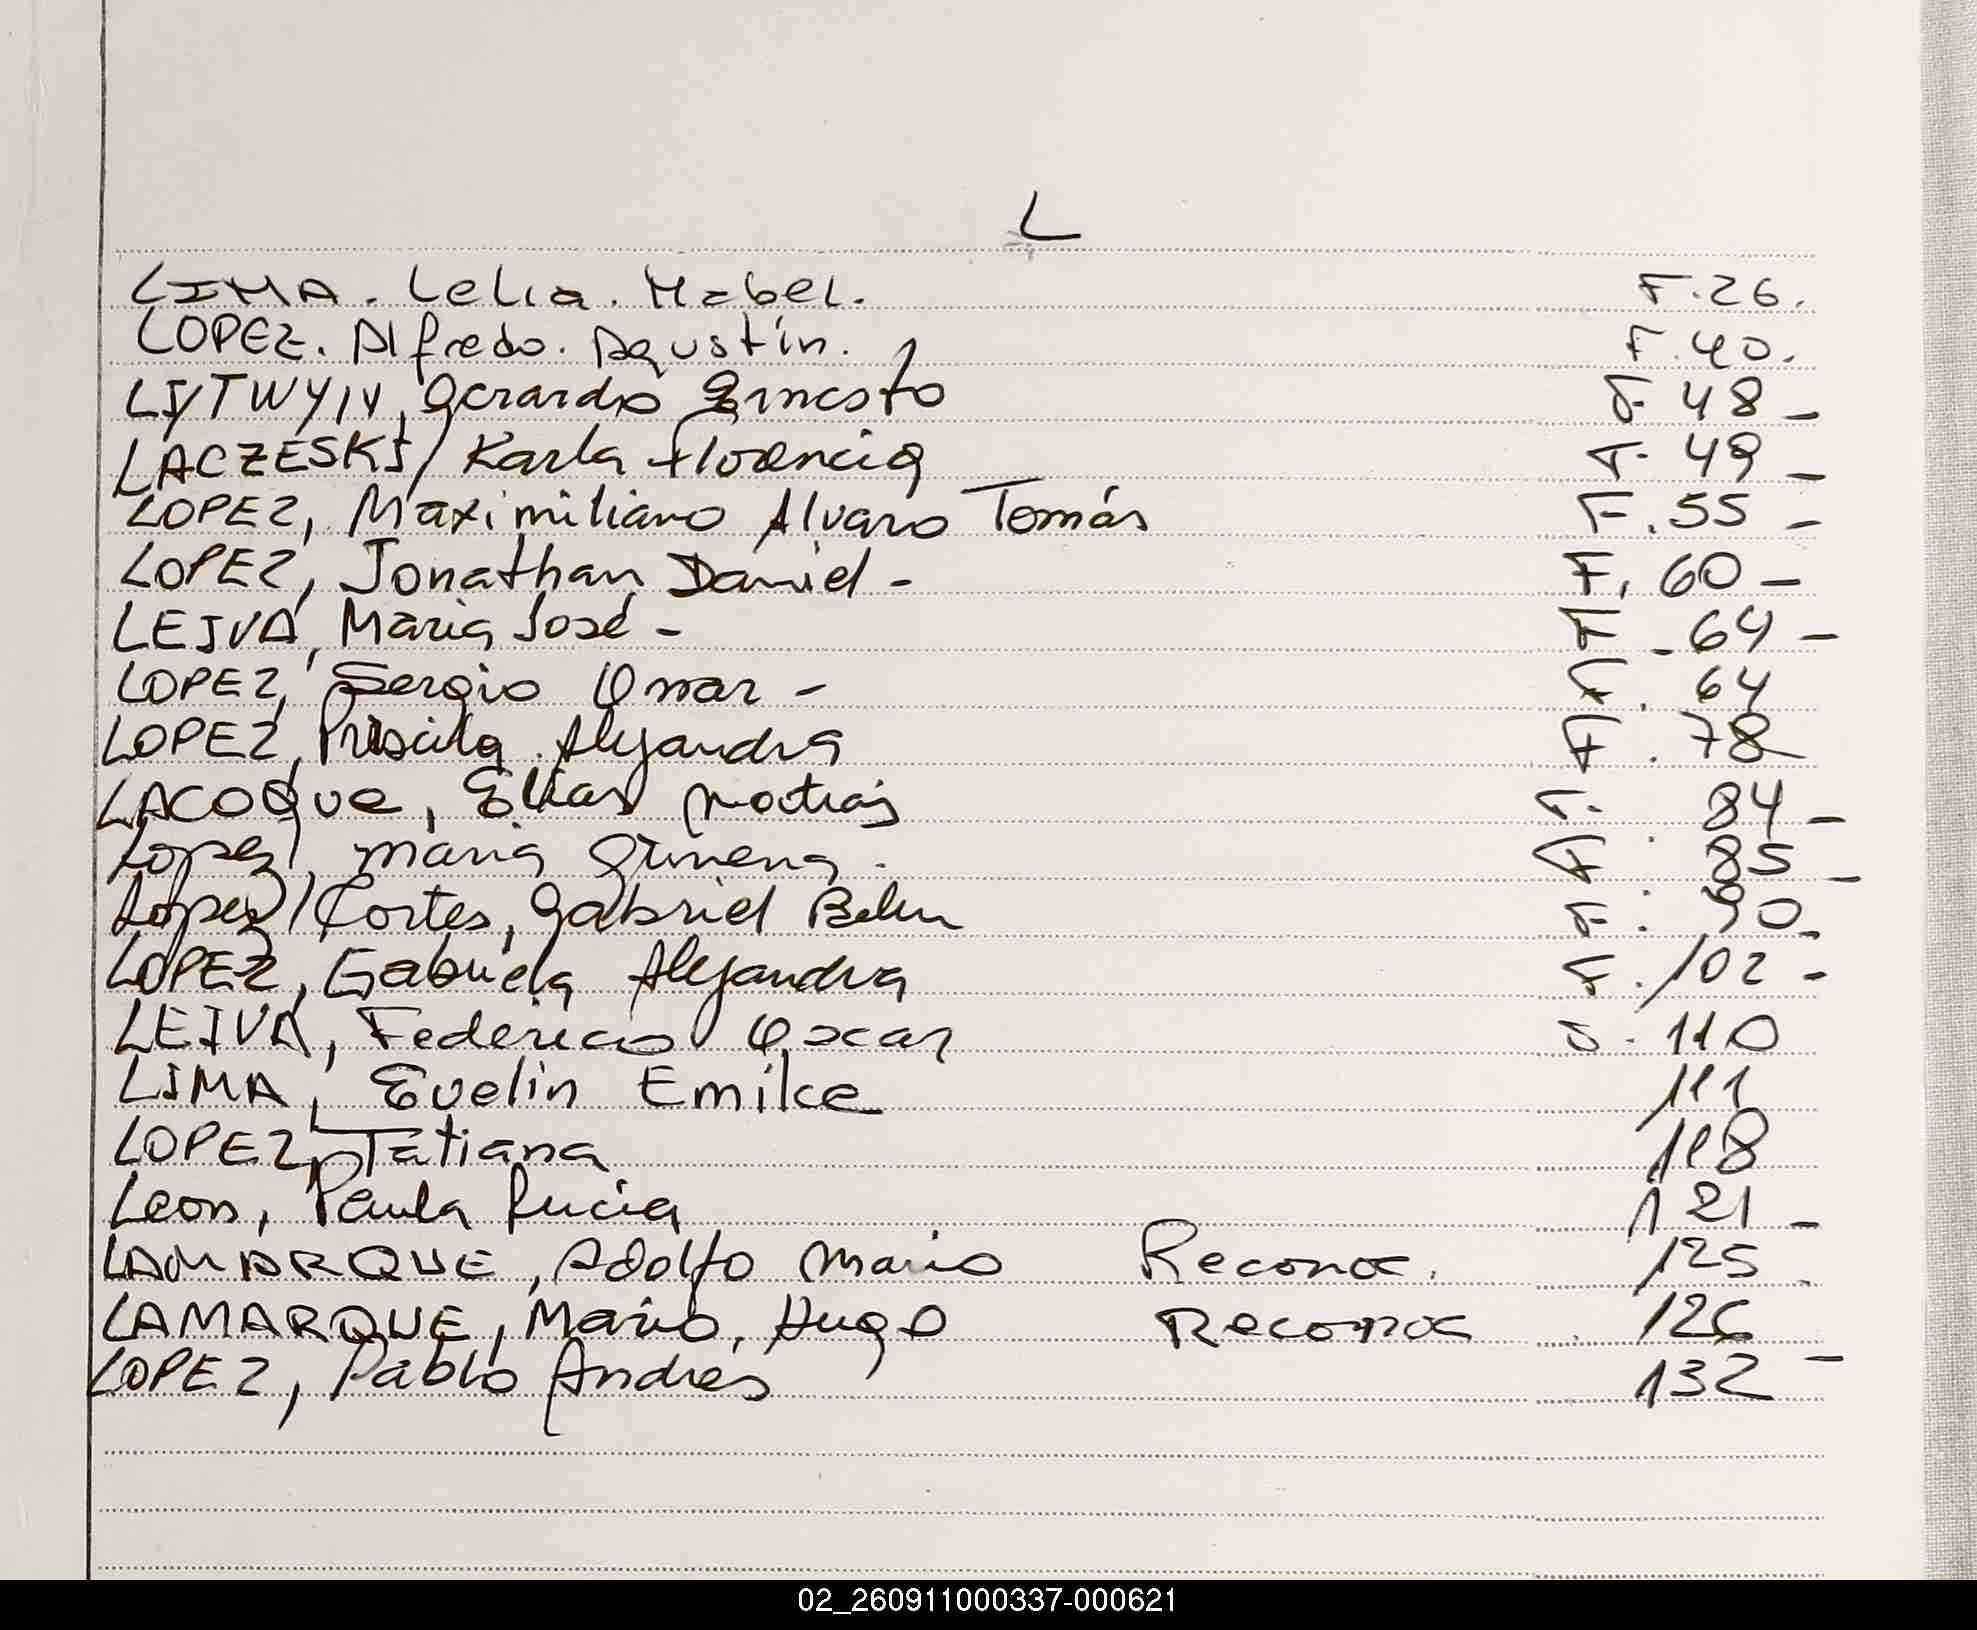 L
LIMA. Lelia. Mabel. F.26.
LOPEZ. Alfredo. Agustín. F.40.
LYTWYN, Gerardo Ernesto F. 48 -
LACZESKI, Karla Florencia F. 49 -
LOPEZ, Maximiliano Alvaro Tomás F. 55 -
LOPEZ, Jonathan Daniel - F. 60 -
LEIVA, María José - F. 64 -
LOPEZ, Sergio Omar - F. 64
LOPEZ, Priscila Alejandra F. 78
LACOQue, Elias Matias F. 84 -
Lopez, maria Gimena. F. 85 -
Lopez Cortes, Gabriel Belen F. 90 -
LOPEZ, Gabriela Alejandra F. 102 -
LEIVA, Federico Oscar F. 110
LIMA, Evelin Emilce 111
LOPEZ, Tatiana 118
Leon, Paula Lucia 121 -
LAMARQUE, Adolfo Mario Reconoc. 125
LAMARQUE, Mario, Hugo Reconoc 126
LOPEZ, Pablo Andrés 132 -
02_260911000337-000621